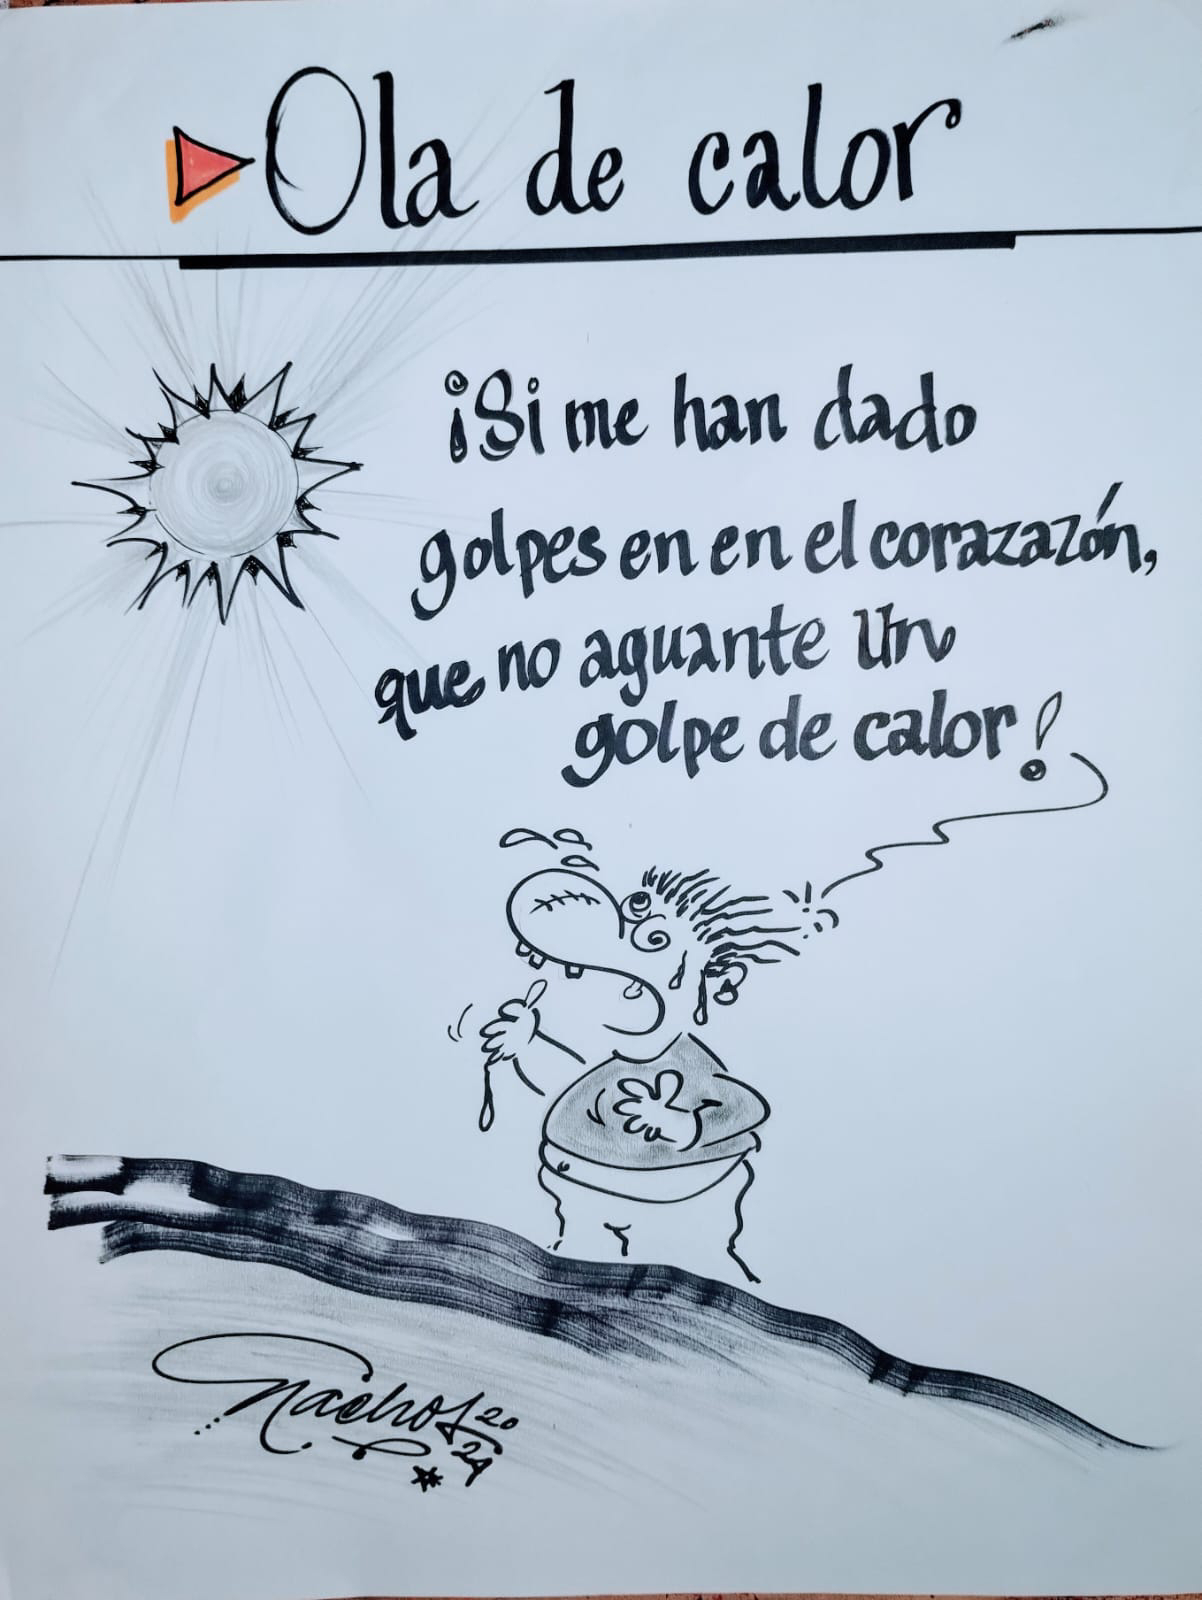 Ola de calor
¡Si me han dado
golpes en en el corazazón,
que no aguante un
golpe de calor!
Nachos 20
24